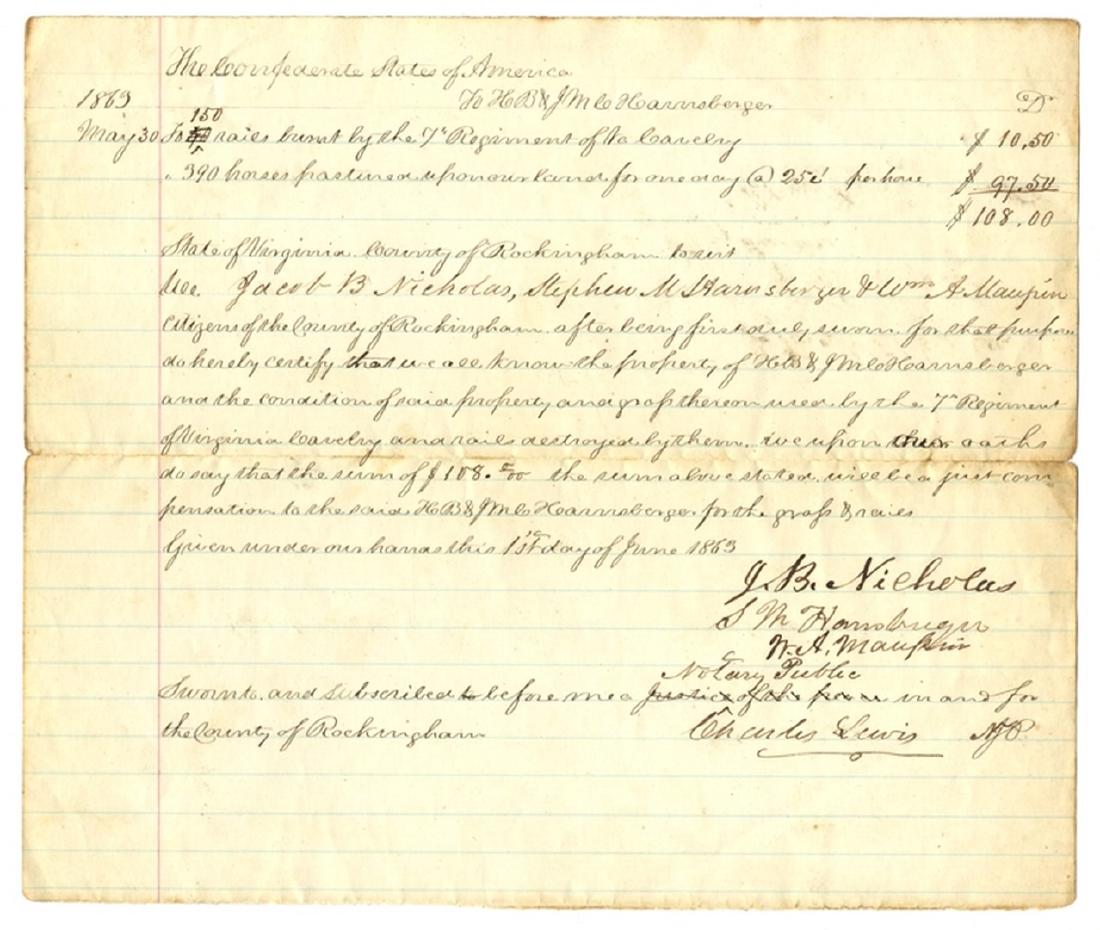 The Confederate States of America
1863 To H B & J M C Harnsberger Dr
150
May 30 To rails burnt by the 7th Regiment of Va Cavelry $ 10.50
" 390 horses pastured upon our land for one day @ 25c per horse $ 97.50
$ 108.00
State of Virginia County of Rockingham to wit
We. Jacob B Nicholas, Stephen M Harnsberger & Wm A Maupin
Citizens of the County of Rockingham after being first duly sworn for that purpose
do hereby certify that we all know the property of H B & J M C Harnsberger
and the condition of said property and grass thereon used by the 7th Regiment
of Virginia Cavelry and rails destroyed by them. we upon our oaths
do say that the sum of $108.00 the sum above stated will be a just com
pensation to the said H B & J M C Harnsberger for the grass & rails
Given under our hands this 1st day of June 1863
J. B. Nicholas
S M Harnsberger
W. A. Maupin
Notary Public
Sworn to and Subscribed to before me a Justice of the peace in and for
the County of Rockingham Charles Lewis NP